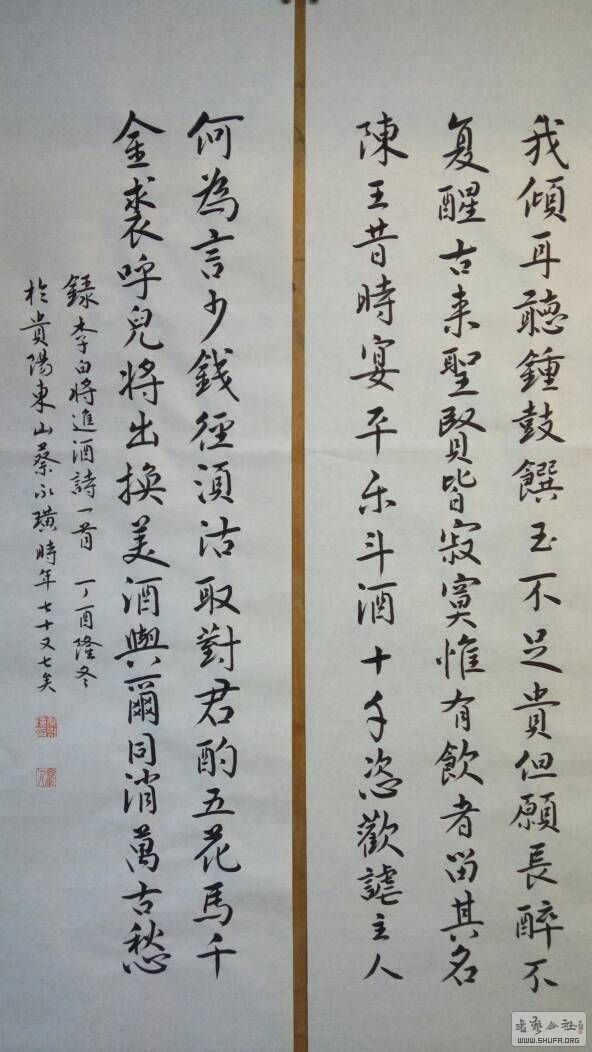 我傾耳聽鍾鼓饌玉不足貴但願長醉不
复醒古来聖賢皆寂寞惟有飲者留其名
陳王昔時宴平乐斗酒十千恣歡謔主人
何為言少錢徑須沽取對君酌五花馬千
金裘呼兒将出换美酒與爾同消萬古愁
録李白将進酒詩一首 丁酉隆冬
於貴陽東山蔡永璜時年七十又七矣
书艺公社
WWW.SHUFA.ORG